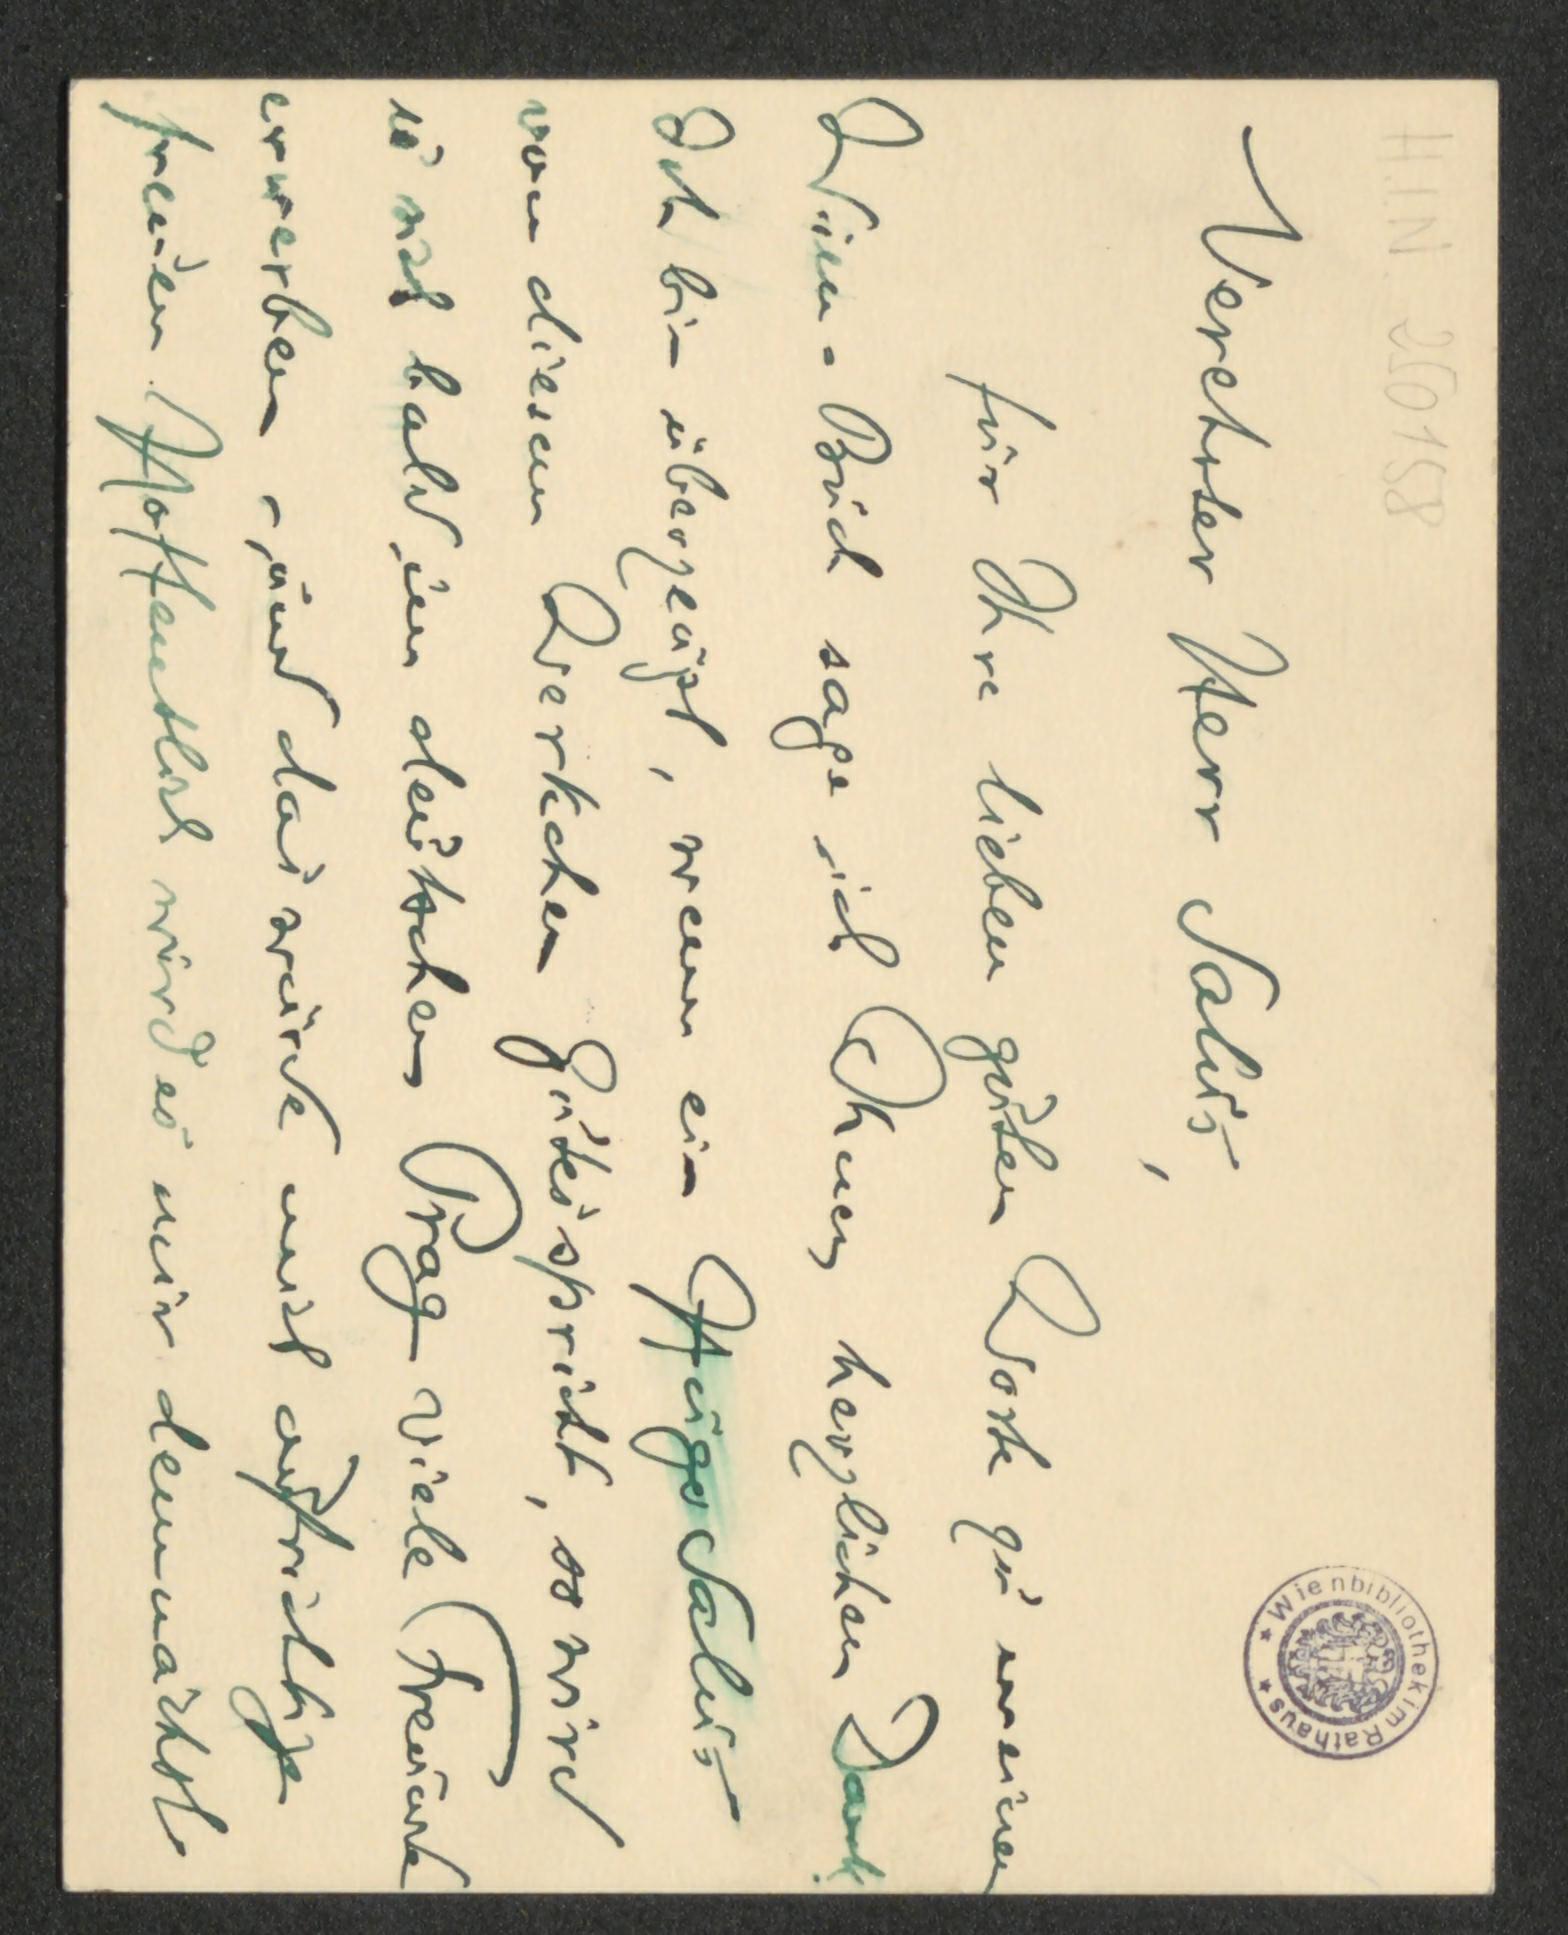 H.I.N 250158
Verehrter Herr Salus,
für Ihre lieben guten Worte zu meinem
Wien-Buch sage ich Ihnen herzlichen Dank!
Ich bin überzeugt, wenn ein Hugo Salus
von diesem Werkchen Gutes spricht, so wird
es sich bald im deutschen Prag viele Freunde
erwerben, und das würde mich aufrichtig
freuen. Hoffentlich wird es mir demnächst
Wienbibliothek im Rathaus